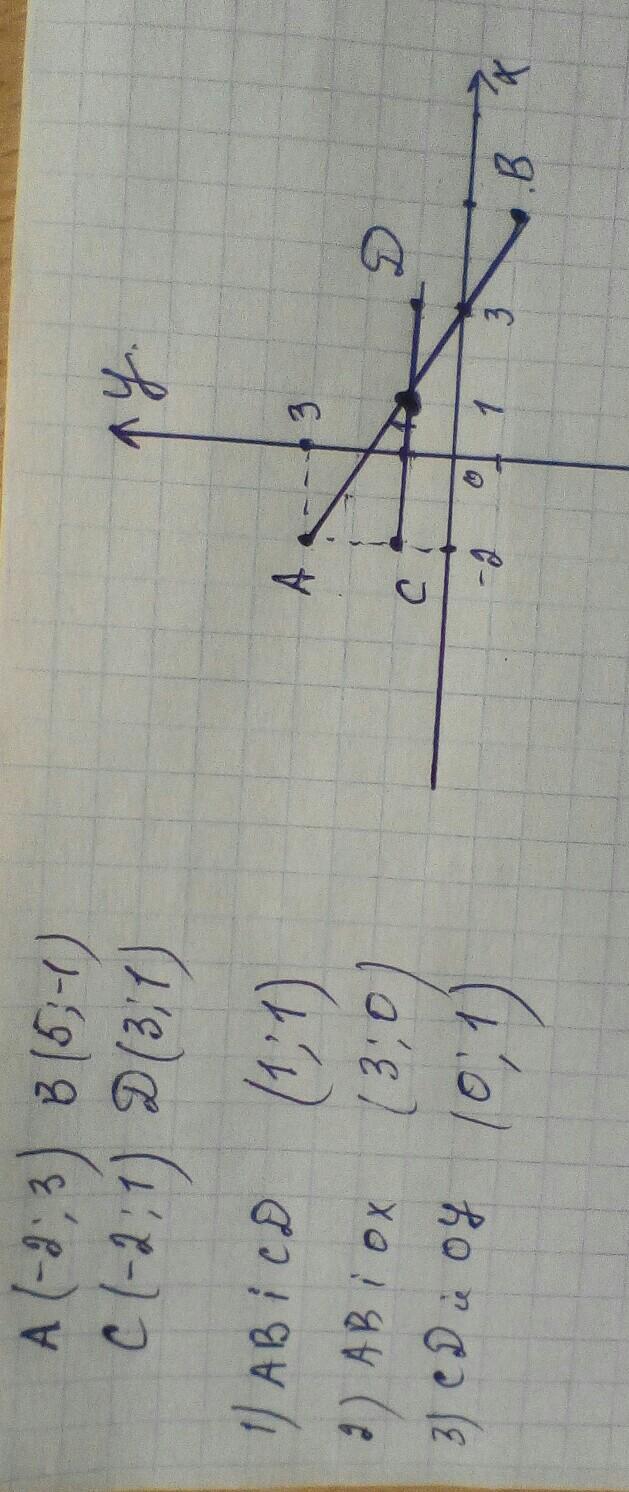 A (-2; 3) B (5; -1)
C (-2; 1) D (3; 1)
1) AB i CD (1; 1)
2) AB i OX (3; 0)
3) CD и OY (0; 1)
y
A
3
C
D
B
x
-2
0
1
3